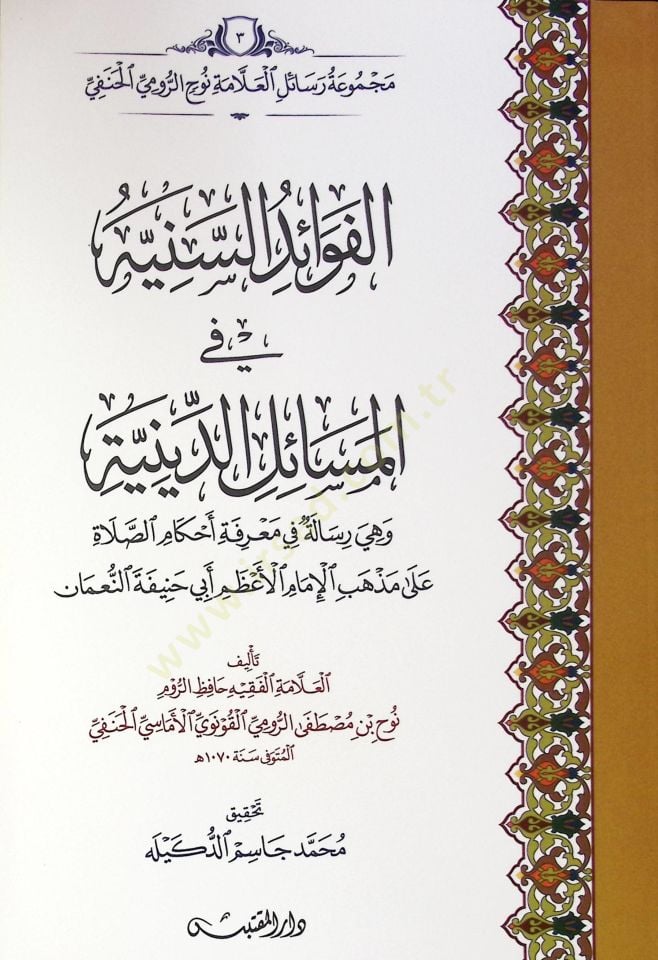 ٣
مَجْمُوعَةُ رَسَائِلِ الْعَلَّامَةِ نُوحٍ الرُّومِيِّ الْحَنَفِيِّ
الفَوَائِدُ السَّنِيَّةُ
فِي
المَسَائِلِ الدِّينِيَّةِ
وَهِيَ رِسَالَةٌ فِي مَعْرِفَةِ أَحْكَامِ الصَّلَاةِ
عَلَى مَذْهَبِ الْإِمَامِ الْأَعْظَمِ أَبِي حَنِيفَةَ النُّعْمَان
تَأْلِيف
الْعَلَّامَةِ الْفَقِيهِ حَافِظِ الرُّوْمِ
نُوْحِ بْنِ مُصْطَفَى الرُّومِيِّ الْقُونَوِيِّ الْأَمَاسِيِّ الْحَنَفِيِّ
الْمُتَوَفَّى سَنَة ١٠٧٠هـ
تَحْقِيق
مُحَمَّد جَاسِم الدُّكَيْلَه
دار المقتبس
www.irsad.com.tr